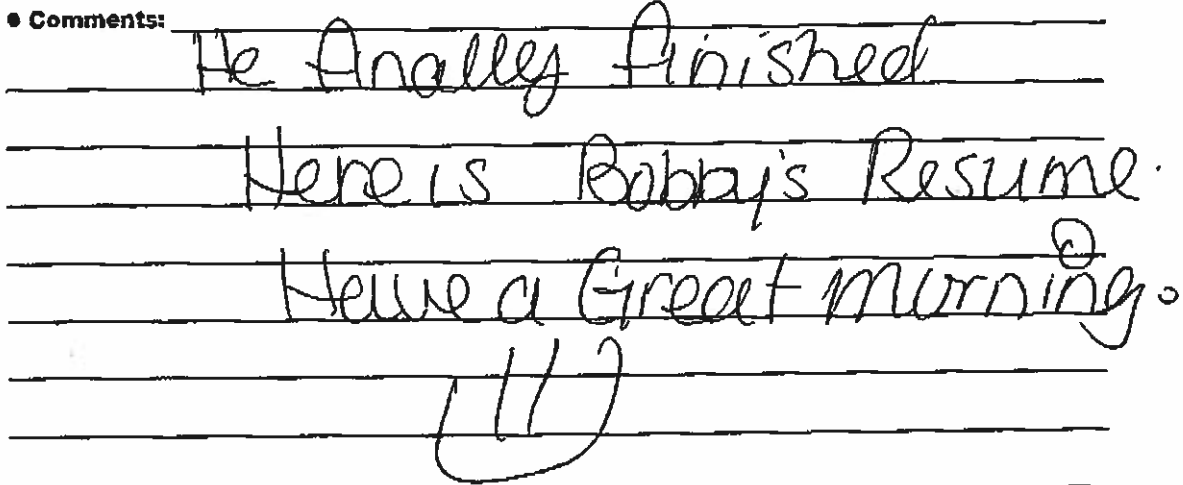 • Comments:
He finally finished
Here is Bobby's Resume.
Have a Great morning.